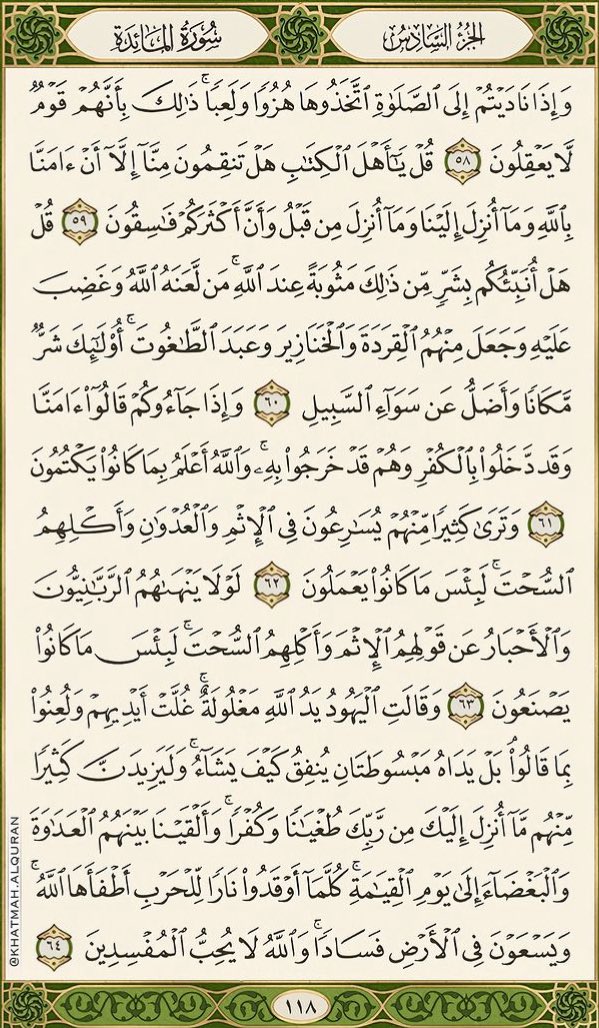 الجزء السادس
سورة المائدة
وَإِذَا نَادَيْتُمْ إِلَى ٱلصَّلَوٰةِ ٱتَّخَذُوهَا هُزُوًا وَلَعِبًا ۚ ذَٰلِكَ بِأَنَّهُمْ قَوْمٌ
لَّا يَعْقِلُونَ ٥٨ قُلْ يَـٰٓأَهْلَ ٱلْكِتَـٰبِ هَلْ تَنقِمُونَ مِنَّآ إِلَّآ أَنْ ءَامَنَّا
بِٱللَّهِ وَمَآ أُنزِلَ إِلَيْنَا وَمَآ أُنزِلَ مِن قَبْلُ وَأَنَّ أَكْثَرَكُمْ فَـٰسِقُونَ ٥٩ قُلْ
هَلْ أُنَبِّئُكُم بِشَرٍّ مِّن ذَٰلِكَ مَثُوبَةً عِندَ ٱللَّهِ ۚ مَن لَّعَنَهُ ٱللَّهُ وَغَضِبَ
عَلَيْهِ وَجَعَلَ مِنْهُمُ ٱلْقِرَدَةَ وَٱلْخَنَازِيرَ وَعَبَدَ ٱلطَّـٰغُوتَ ۚ أُو۟لَـٰٓئِكَ شَرٌّ
مَّكَانًا وَأَضَلُّ عَن سَوَآءِ ٱلسَّبِيلِ ٦٠ وَإِذَا جَآءُوكُمْ قَالُوٓا۟ ءَامَنَّا
وَقَد دَّخَلُوا۟ بِٱلْكُفْرِ وَهُمْ قَدْ خَرَجُوا۟ بِهِۦ ۚ وَٱللَّهُ أَعْلَمُ بِمَا كَانُوا۟ يَكْتُمُونَ
٦١ وَتَرَىٰ كَثِيرًا مِّنْهُمْ يُسَـٰرِعُونَ فِى ٱلْإِثْمِ وَٱلْعُدْوَٰنِ وَأَكْلِهِمُ
ٱلسُّحْتَ ۚ لَبِئْسَ مَا كَانُوا۟ يَعْمَلُونَ ٦٢ لَوْلَا يَنْهَىٰهُمُ ٱلرَّبَّـٰنِيُّونَ
وَٱلْأَحْبَارُ عَن قَوْلِهِمُ ٱلْإِثْمَ وَأَكْلِهِمُ ٱلسُّحْتَ ۚ لَبِئْسَ مَا كَانُوا۟
يَصْنَعُونَ ٦٣ وَقَالَتِ ٱلْيَهُودُ يَدُ ٱللَّهِ مَغْلُولَةٌ ۚ غُلَّتْ أَيْدِيهِمْ وَلُعِنُوا۟
بِمَا قَالُوا۟ ۘ بَلْ يَدَاهُ مَبْسُوطَتَانِ يُنفِقُ كَيْفَ يَشَآءُ ۚ وَلَيَزِيدَنَّ كَثِيرًا
مِّنْهُم مَّآ أُنزِلَ إِلَيْكَ مِن رَّبِّكَ طُغْيَـٰنًا وَكُفْرًا ۚ وَأَلْقَيْنَا بَيْنَهُمُ ٱلْعَدَٰوَةَ
وَٱلْبَغْضَآءَ إِلَىٰ يَوْمِ ٱلْقِيَـٰمَةِ ۚ كُلَّمَآ أَوْقَدُوا۟ نَارًا لِّلْحَرْبِ أَطْفَأَهَا ٱللَّهُ ۚ
وَيَسْعَوْنَ فِى ٱلْأَرْضِ فَسَادًا ۚ وَٱللَّهُ لَا يُحِبُّ ٱلْمُفْسِدِينَ ٦٤
١١٨
@KHATMAH.ALQURAN